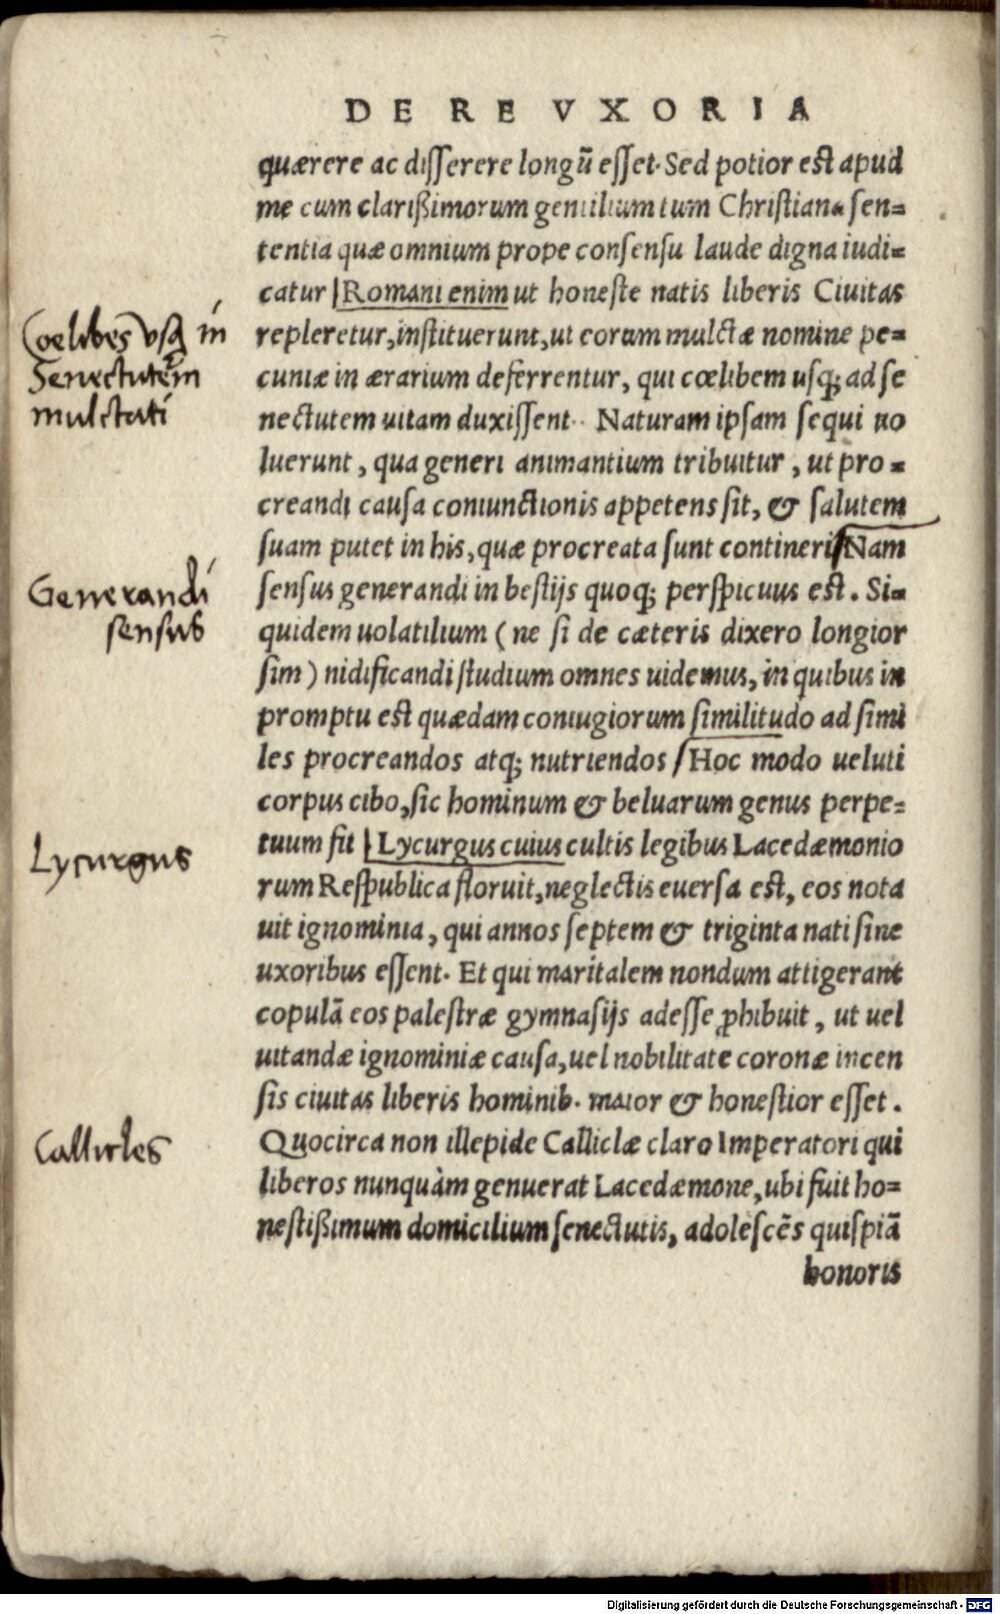 DE RE VXORIA
quærere ac disserere longũ esset. Sed potior est apud
me cum clarißimorum gentilium tum Christiana sen=
tentia quæ omnium prope consensu laude digna iudi=
catur Romani enim ut honeste natis liberis Ciuitas
Coelibes usq in
repleretur, instituerunt, ut eorum mulctæ nomine pe=
Senectutem
cuniæ in ærarium deferrentur, qui cœlibem usq; ad se
mulctati
nectutem uitam duxissent. Naturam ipsam sequi uo
luerunt, qua generi animantium tribuitur, ut pro=
creandi causa coniunctionis appetens sit, & salutem
suam putet in his, quæ procreata sunt contineri Nam
Generandi
sensus generandi in bestijs quoq; perspicuus est. Si=
sensus
quidem uolatilium (ne si de cæteris dixero longior
sim) nidificandi studium omnes uidemus, in quibus in
promptu est quædam coniugiorum similitudo ad simi
les procreandos atq; nutriendos Hoc modo ueluti
corpus cibo, sic hominum & beluarum genus perpe=
Lycurgus
tuum fit Lycurgus cuius cultis legibus Lacedæmonio
rum Respublica floruit, neglectis euersa est, eos nota
uit ignominia, qui annos septem & triginta nati sine
uxoribus essent. Et qui maritalem nondum attigerant
copulã eos palestræ gymnasijs adesse ꝓhibuit, ut uel
uitandæ ignominiæ causa, uel nobilitate coronæ incen
sis ciuitas liberis hominib. maior & honestior esset.
Callicles
Quocirca non illepide Calliclæ claro Imperatori qui
liberos nunquàm genuerat Lacedæmone, ubi fuit ho=
nestißimum domicilium senectutis, adolescẽs quispiã
honoris
Digitalisierung gefördert durch die Deutsche Forschungsgemeinschaft - DFG